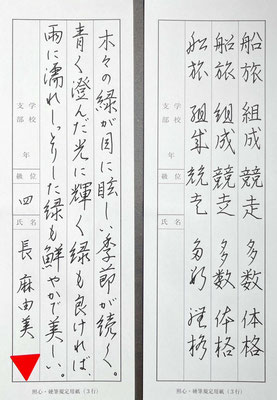 木々の緑が目に眩しい季節が続く。
青く澄んだ光に輝く緑も良ければ、
雨に濡れしっとりした緑も鮮やかで美しい。
学校
支部
年
級位
四
氏名
長麻由美
照心・硬筆規定用紙(3行)
船旅 組成 競走 多数 体格
船旅 組成 競走 多数 体格
船旅 組成 競走 多数 体格
学校
支部
年
級位
氏名
照心・硬筆規定用紙(3行)